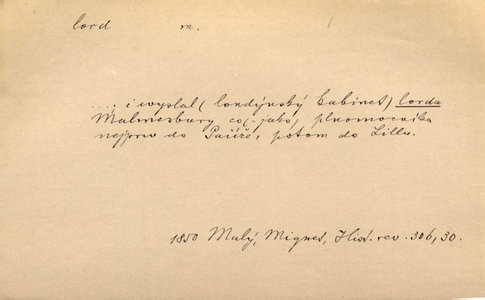 lord m.
.... i wyslal (londýnský kabinet) lorda
Malmesbury co (-jako) plnomocníka
nejprw do Paříže, potom do Lillu.
1850 Malý, Mignet, Hist. rev. 306, 30.